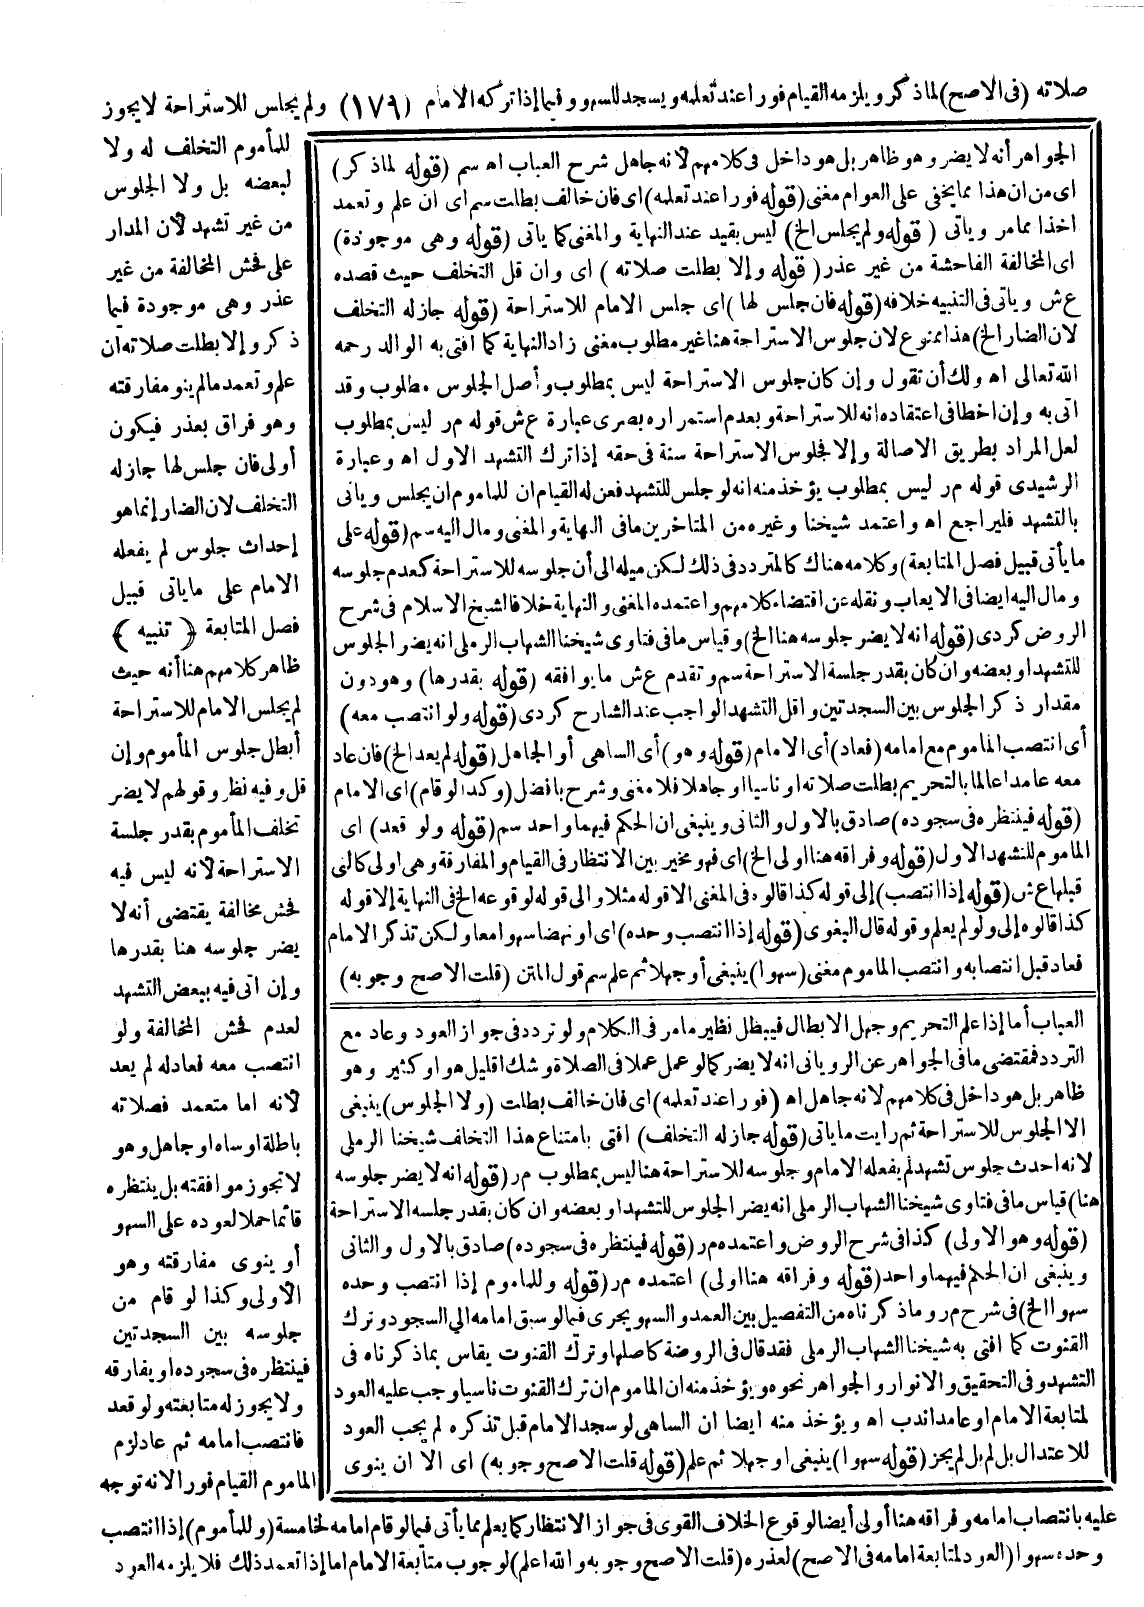 صلاته (فى الاصح) لماذكر ويلزمه القيام فورا عند تعلمه ويسجد للسهو وفيما إذا تركه الامام (١٧٩) ولم يجلس للاستراحة لا يجوز
للمأموم التخلف له ولا
لبعضه بل ولا الجلوس
من غير تشهد لأن المدار
على فحش المخالفة من غير
عذر وهى موجودة فيما
ذكر وإلا بطلت صلاته ان
علم وتعمد مالم ينو مفارقته
وهو فراق بعذر فيكون
أولى فان جلس لها جاز له
التخلف لان الضار إنما هو
إحداث جلوس لم يفعله
الامام على ماياتى قبيل
فصل المتابعة ﴿ تنبيه ﴾
ظاهر كلامهم هنا أنه حيث
لم يجلس الامام للاستراحة
أبطل جلوس المأموم وإن
قل وفيه نظر وقولهم لا يضر
تخلف المأموم بقدر جلسة
الاستراحة لأنه ليس فيه
فحش مخالفة يقتضى أنه لا
يضر جلوسه هنا بقدرها
وإن اتى فيه ببعض التشهد
لعدم فحش المخالفة ولو
انتصب معه فعاد له لم يعد
لأنه اما متعمد فصلاته
باطلة او ساه او جاهل وهو
لا تجوز موافقته بل ينتظره
قائما حملا لعوده على السهو
أو ينوى مفارقته وهو
الأولى وكذا لو قام من
جلوسه بين السجدتين
فينتظره فى سجوده او يفارقه
ولا يجوز له متابعته ولو قعد
فانتصب امامه ثم عاد لزم
الماموم القيام فورا لانه توجه
عليه بانتصاب امامه وفراقه هنا أولى أيضا لوقوع الخلاف القوى فى جواز الانتظار كما يعلم مما يأتى فيما لو قام امامه لخامسة (و للمأموم) إذا انتصب
وحده سهوا (العود لمتابعة امامه فى الاصح) لعذره (قلت الاصح وجوبه والله اعلم) لوجوب متابعة الامام اما إذا تعمد ذلك فلا يلزمه العود
الجواهر أنه لا يضر وهو ظاهر بل هو داخل فى كلامهم لانه جاهل شرح العباب اه سم (قوله لماذكر)
اى من ان هذا مما يخفى على العوام مغنى (قوله فورا عند تعلمه) اى فان خالف بطلت سم اى ان علم وتعمد
اخذا مما مر وياتى (قوله ولم يجلس الخ) ليس بقيد عند النهاية والمغنى كما ياتى (قوله وهى موجودة)
اى المخالفة الفاحشة من غير عذر (قوله وإلا بطلت صلاته) اى وان قل التخلف حيث قصده
ع ش وياتى فى التنبيه خلافه (قوله فان جلس لها) اى جلس الامام للاستراحة (قوله جاز له التخلف
لان الضار الخ) هذا ممنوع لان جلوس الاستراحة هنا غير مطلوب مغنى زاد النهاية كما افتى به الوالد رحمه
الله تعالى اه ولك أن تقول وإن كان جلوس الاستراحة ليس بمطلوب وأصل الجلوس مطلوب وقد
اتى به وإن اخطا فى اعتقاده انه للاستراحة وبعدم استمراره بصرى عبارة ع ش قوله م ر ليس بمطلوب
لعل المراد بطريق الاصالة وإلا فجلوس الاستراحة سنة فى حقه إذا ترك التشهد الاول اه وعبارة
الرشيدى قوله م ر ليس بمطلوب يؤخذ منه انه لو جلس للتشهد فعن له القيام ان للماموم ان يجلس وياتى
بالتشهد فليراجع اه واعتمد شيخنا وغيره من المتاخرين مافى النهاية والمغنى ومال اليه سم (قوله على
ما يأتى قبيل فصل المتابعة) وكلامه هناك كالمتردد فى ذلك لكن ميله الى أن جلوسه للاستراحة كعدم جلوسه
ومال اليه ايضا فى الايعاب ونقله عن اقتضاء كلامهم واعتمده المغنى والنهاية خلافا لشيخ الاسلام فى شرح
الروض كردى (قوله انه لا يضر جلوسه هنا الخ) وقياس مافى فتاوى شيخنا الشهاب الرملى انه يضر الجلوس
للتشهد او بعضه وان كان بقدر جلسة الاستراحة سم وتقدم ع ش ما يوافقه (قوله بقدرها) وهو دون
مقدار ذكر الجلوس بين السجدتين واقل التشهد الواجب عند الشارح كردى (قوله ولو انتصب معه)
أى انتصب الماموم مع امامه (فعاد) أى الامام (قوله وهو) أى الساهى أو الجاهل (قوله لم يعد الخ) فان عاد
معه عامدا عالما بالتحريم بطلت صلاته او ناسيا او جاهلا فلا مغنى وشرح بافضل (وكذا لو قام) اى الامام
(قوله فينتظره فى سجوده) صادق بالاول والثانى وينبغى ان الحكم فيهما واحد سم (قوله ولو قعد) اى
الماموم للتشهد الاول (قوله وفراقه هنا اولى الخ) اى فهو مخير بين الانتظار فى القيام والمفارقة وهى اولى كالتى
قبلها ع ش (قوله إذا انتصب) إلى قوله كذا قالوه فى المغنى الا قوله مثلا والى قوله لوقوعه الخ فى النهاية إلا قوله
كذا قالوه إلى ولو لم يعلم وقوله قال البغوى (قوله إذا انتصب وحده) اى او نهضا سهوا معا ولكن تذكر الامام
فعاد قبل انتصابه وانتصب الماموم مغنى (سهوا) ينبغى أو جهلا ثم علم سم قول المتن (قلت الاصح وجوبه)
العباب أما إذا علم التحريم وجهل الابطال فيبطل نظير مامر فى الكلام ولو تردد فى جواز العود وعاد مع
التردد فمقتضى مافى الجواهر عن الرويانى انه لا يضر كما لو عمل عملا فى الصلاة وشك اقليل هو او كثير وهو
ظاهر بل هو داخل فى كلامهم لانه جاهل اه (فورا عند تعلمه) اى فان خالف بطلت (ولا الجلوس) ينبغى
الا الجلوس للاستراحة ثم رايت ماياتى (قوله جاز له التخلف) افتى بامتناع هذا التخلف شيخنا الرملى
لانه احدث جلوس تشهد لم يفعله الامام وجلوسه للاستراحة هنا ليس بمطلوب م ر (قوله انه لا يضر جلوسه
هنا) قياس مافى فتاوى شيخنا الشهاب الرملى انه يضر الجلوس للتشهد او بعضه وان كان بقدر جلسه الاستراحة
(قوله وهو الاولى) كذا فى شرح الروض واعتمده م ر (قوله فينتظره فى سجوده) صادق بالاول والثانى
وينبغى ان الحكم فيهما واحد (قوله وفراقه هنا اولى) اعتمده م ر (قوله وللماموم إذا انتصب وحده
سهوا الخ) فى شرح م ر وماذكرناه من التفصيل بين العمد والسهو يجرى فيما لو سبق امامه الى السجود وترك
القنوت كما افتى به شيخنا الشهاب الرملى فقد قال فى الروضة كاصلها وترك القنوت يقاس بماذكرناه فى
التشهد وفى التحقيق والانوار والجواهر نحوه ويؤخذ منه ان الماموم ان ترك القنوت ناسيا وجب عليه العود
لمتابعة الامام او عامدا ندب اه ويؤخذ منه ايضا ان الساهى لو سجد الامام قبل تذكره لم يجب العود
للاعتدال بل لم بل لم يجز (قوله سهوا) ينبغى او جهلا ثم علم (قوله قلت الاصح وجوبه) اى الا ان ينوى